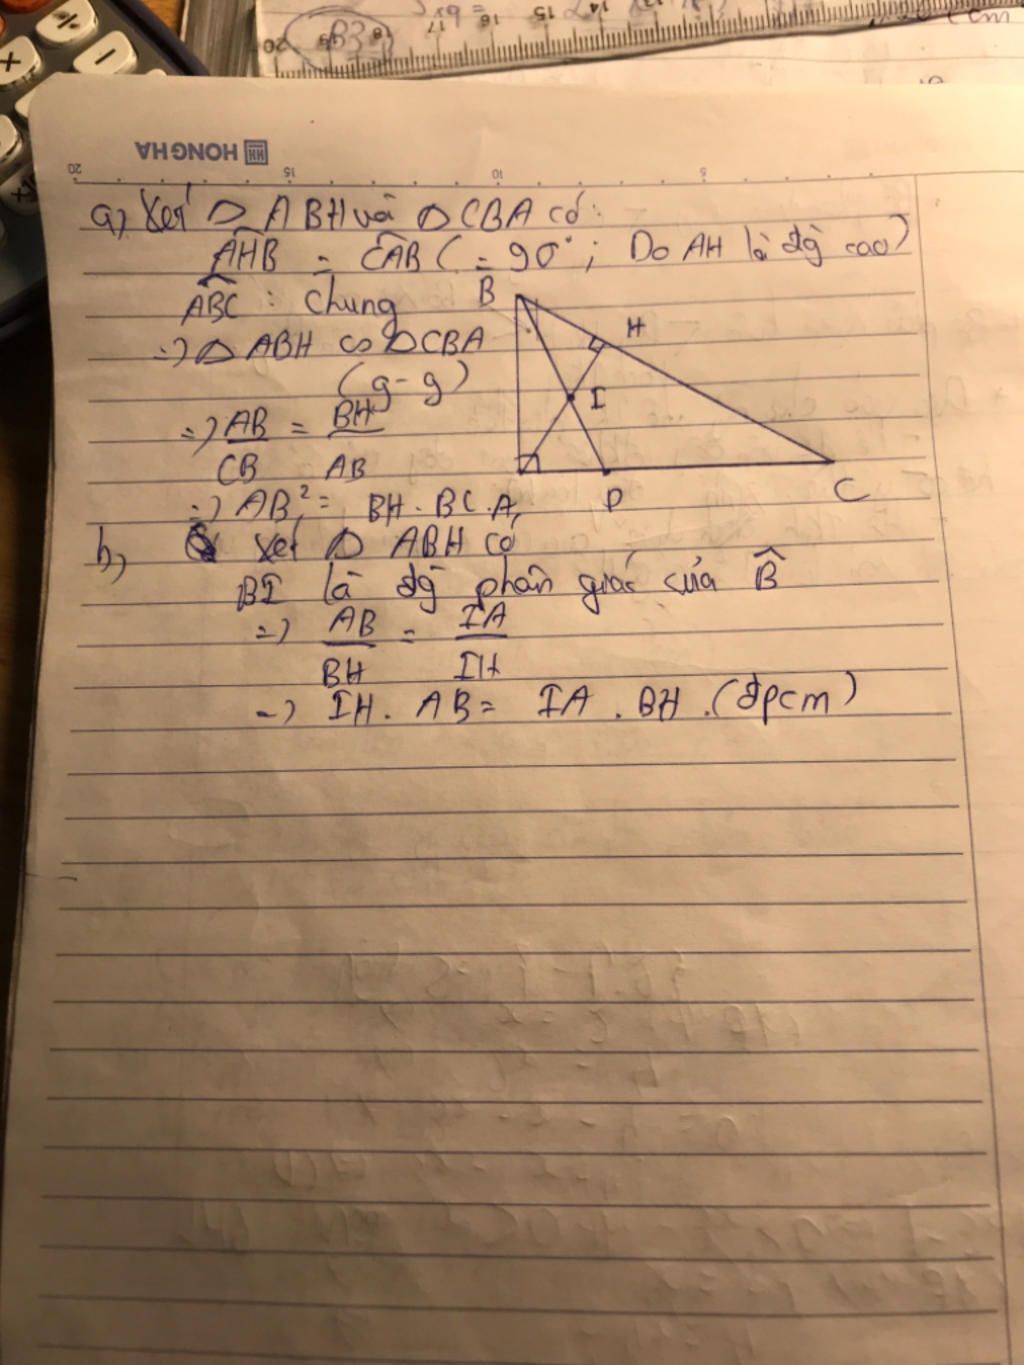 HONG HA
20 15 10 5
20 19 18 17 16 15 14
a) Xét △ ABH và △ CBA có:
AHB = CAB (= 90°; Do AH là đg cao)
ABC : Chung
=> △ ABH ∽ △ CBA
(g-g)
=> AB/CB = BH/AB
=> AB² = BH. BC.
b) Xét △ ABH có
BI là đg phân giác của B̂
=> AB/BH = IA/IH
=> IH. AB = IA . BH . (đpcm)
B
H
I
A
D
C